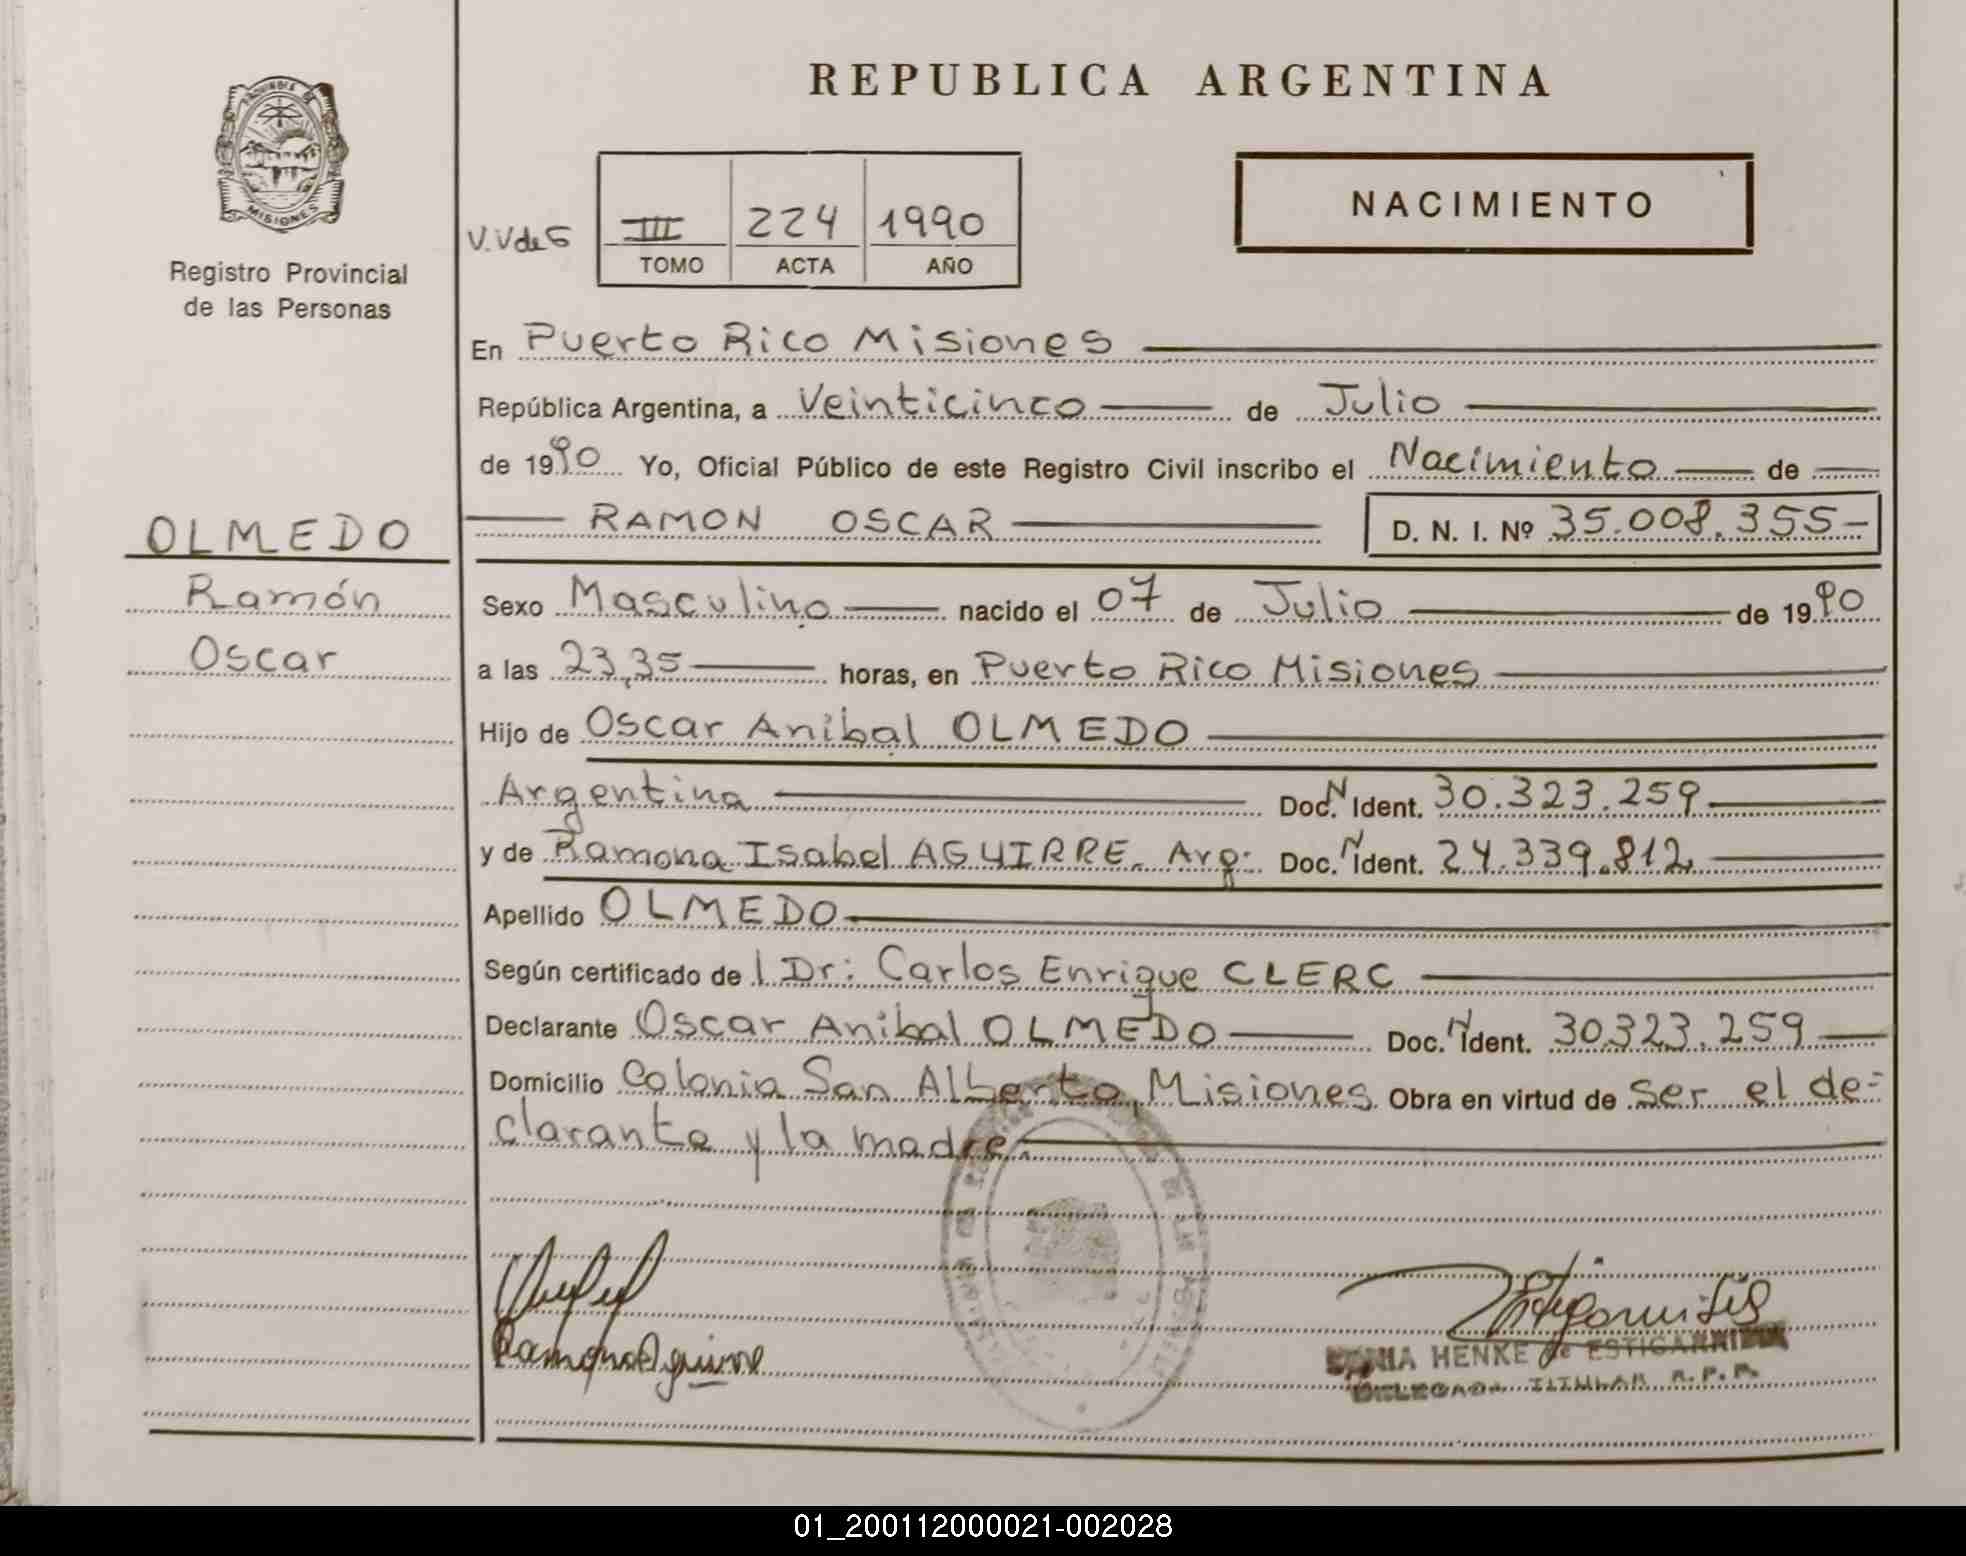 REPUBLICA ARGENTINA
PROVINCIA DE
MISIONES
Registro Provincial
de las Personas
NACIMIENTO
V.V de G
III 224 1990
TOMO ACTA AÑO
En Puerto Rico Misiones
República Argentina, a Veinticinco de Julio
de 1990 Yo, Oficial Público de este Registro Civil inscribo el Nacimiento de
RAMON OSCAR D. N. I. Nº 35.008.355-
OLMEDO
Ramón
Oscar
Sexo Masculino nacido el 07 de Julio de 1990
a las 23,35 horas, en Puerto Rico Misiones
Hijo de Oscar Anibal OLMEDO
Argentina Doc. N Ident. 30.323.259
y de Ramona Isabel AGUIRRE. Arg: Doc. N Ident. 24.339.812
Apellido OLMEDO
Según certificado del Dr: Carlos Enrique CLERC
Declarante Oscar Anibal OLMEDO Doc. N Ident. 30323.259
Domicilio Colonia San Alberto, Misiones. Obra en virtud de ser el de-
clarante y la madre.
Ramona Aguirre
HENKE de ESTIGARRIBIA
DELEGADA TITULAR R.P.P.
01_200112000021-002028